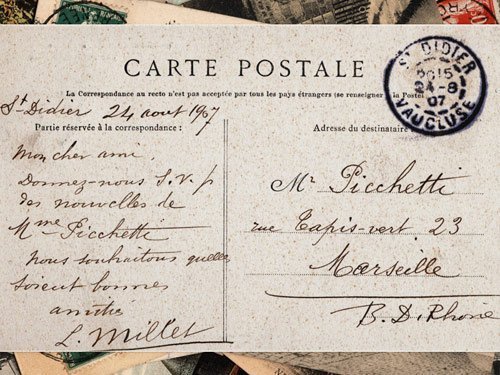 CARTE POSTALE
La Correspondance au recto n'est pas acceptée par tous les pays étrangers (se renseigner à la Poste)
St Didier 24 aout 1907
Partie réservée à la correspondance :
Adresse du destinataire
ST DIDIER
24-8
07
VAUCLUSE
Mon cher ami
Donnez-nous S.V.p
des nouvelles de
Mme Picchetti
nous souhaitons quelles
soient bonnes
amitiés
L. Millet
Mr Picchetti
rue Tapis-vert 23
Marseille
B. D. Rhone